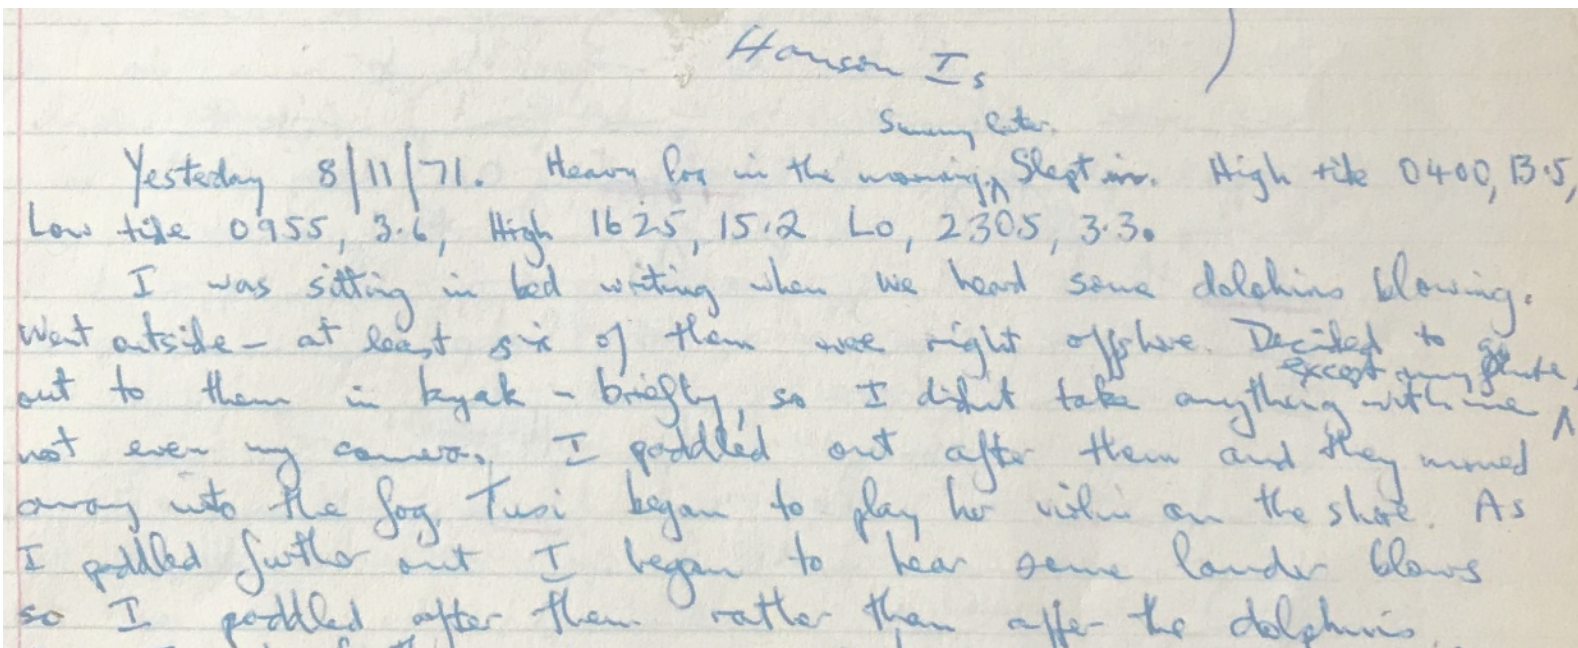 Hanson Is
Sunny later.
Yesterday 8/11/71. Heavy fog in the morning, ^ Slept in. High tide 0400, 13.5,
Low tide 0955, 3.6, High 1625, 15.2 Lo, 2305, 3.3.
I was sitting in bed writing when we heard some dolphins blowing.
Went outside - at least six of them were right offshore. Decided to go
except my flute,
out to them in kyak - briefly, so I didn't take anything with me ^
not even my camera. I paddled out after them and they moved
away into the fog. Tusi began to play her violin on the shore. As
I paddled further out I began to hear some louder blows
so I paddled after them rather than after the dolphins.